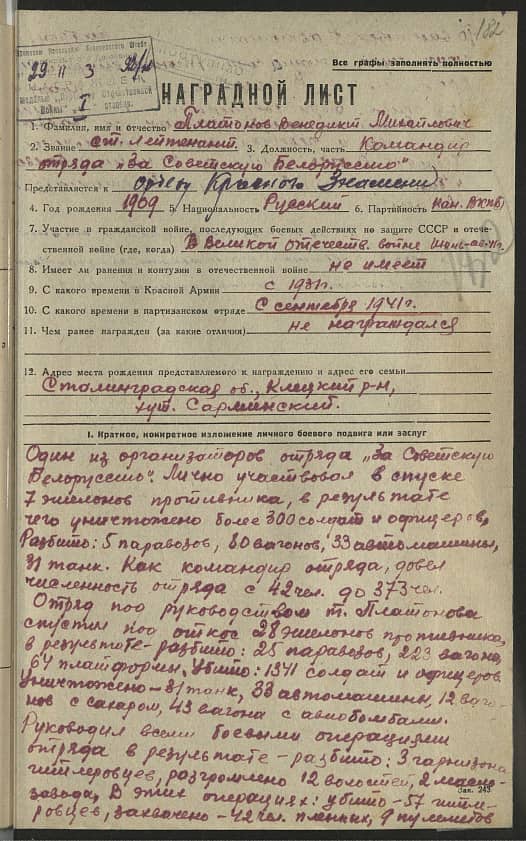 182
Все графы заполнять полностью
29 II 3
НАГРАДНОЙ ЛИСТ
1. Фамилия, имя и отчество Платонов Венедикт Михайлович
2. Звание ст. Лейтенант. 3. Должность, часть Командир
отряда „За Советскую Белоруссию"
Представляется к ордену Красного Знамени
4. Год рождения 1909 5. Национальность Русский 6. Партийность кан. ВКП(б)
7. Участие в гражданской войне, последующих боевых действиях по защите СССР и отече-
ственной войне (где, когда) В Великой отечеств. войне
8. Имеет ли ранения и контузии в отечественной войне не имеет
9. С какого времени в Красной Армии с 1931г.
10. С какого времени в партизанском отряде С сентября 1941г.
11. Чем ранее награжден (за какие отличия) не награждался
12. Адрес места рождения представляемого к награждению и адрес его семьи
Сталинградская об., Клецкий р-н,
хут.
I. Краткое, конкретное изложение личного боевого подвига или заслуг
Один из организаторов отряда „За Советскую
Белоруссию". Лично участвовал в спуске
7 эшелонов противника, в результате
чего уничтожено более 300 солдат и офицеров,
Разбито: 5 паравозов, 80 вагонов, 33 автомашины,
31 танк. Как командир отряда, довел
численность отряда с 42 чел. до 373 чел.
Отряд под руководством т. Платонова
спустил под откос 28 эшелонов противника,
в результате - разбито: 25 паравозов, 223 вагона,
64 платформы, Убито: 1341 солдат и офицеров
Уничтожено - 31 танк, 33 автомашины, 12 ваго-
нов с сахаром, 43 вагона с авиобомбами.
Руководил всеми боевыми операциями
отряда в результате - разбито: 3 гарнизона
гитлеровцев, разгромлено 12 волостей, 2 масло-
завода, В этих операциях: убито - 57 гитле-
Зак. 243
ровцев, захвачено - 42 чел. пленных, 9 пулеметов